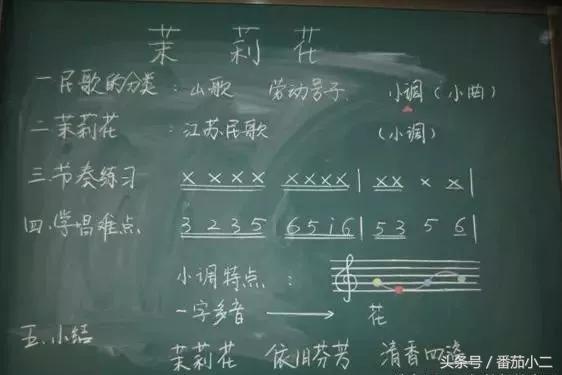 茉莉花
一.民歌的分类：山歌 劳动号子、 小调（小曲）
二.茉莉花 ：江苏民歌 （小调）
三.节奏练习 X X X X X X X X | X X X X |
四.学唱难点 3 2 3 5 6 5 i 6 | 5 3 5 6 |
小调特点 ：
一字多音 → 花
五.小结 茉莉花 依旧芬芳 清香四溢
头条号 / 番茄小二